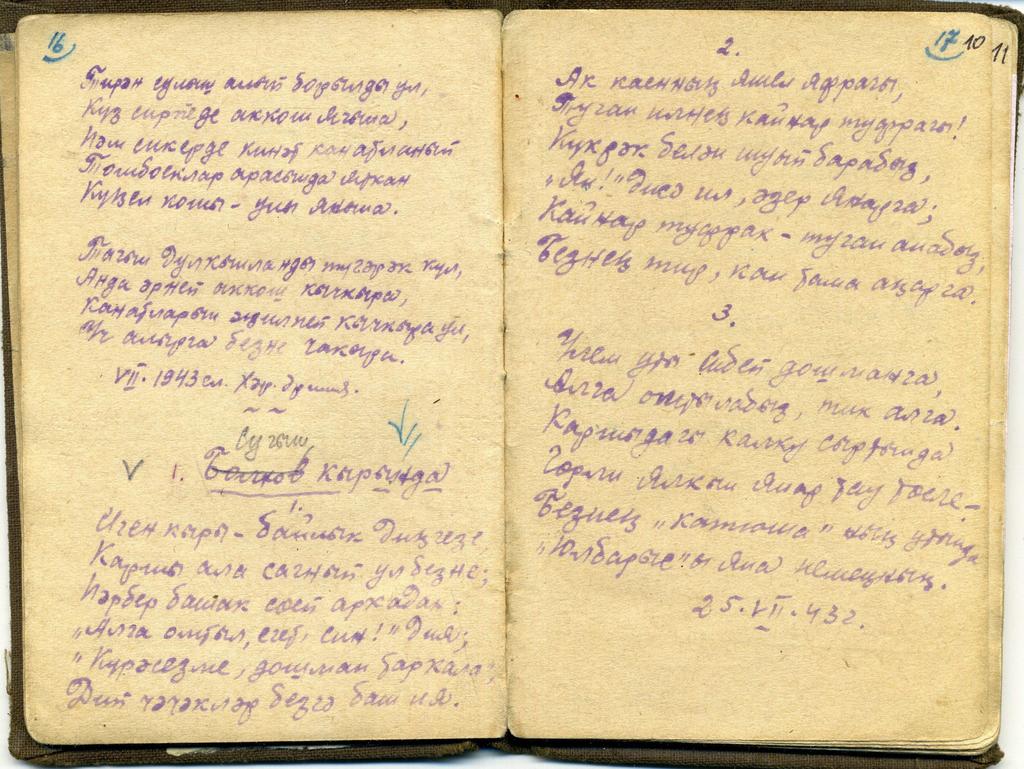 16
Тирән сулыш алып борылды ул,
Күз сирпеде аккош ягына,
Һәм сикерде кинәт канатланып
Томбоеклар арасында яткан
Күңел кошы - улы янына.
Тагын дулкынланды түгәрәк күл,
Анда әрнеп аккош кычкыра,
Канатларын җилпеп кычкыра ул,
Үч алырга безне чакыра.
VII. 1943 ел. Хәр.
Сугыш
V 1. кырында
1.
Иген кыры - байлык диңгезе,
Каршы ала сагынып ул безне;
Һәрбер башак сөеп аркадан:
"Алга омтыл, егет, син!" дия;
"Күрәсезме, дошман таркала",
Дип чәчәкләр безгә баш ия.
17 10 11
2.
Ак каенның яшел яфрагы,
Туган илнең кайнар туфрагы!
Күкрәк белән шуып барабыз,
"Ян!" дисә ил, әзер янарга;
Кайнар туфрак - туган анабыз,
Безнең тир, кан тама аңарга.
3.
Үлем уты сибеп дошманга,
Алга омтылабыз, тик алга.
Каршыдагы калку сыртында
Гөрли ялкын янар тау төсле -
Безнең "катюша"ның утында
"Юлбарыс"ы яна немецның.
25.VII.43г.